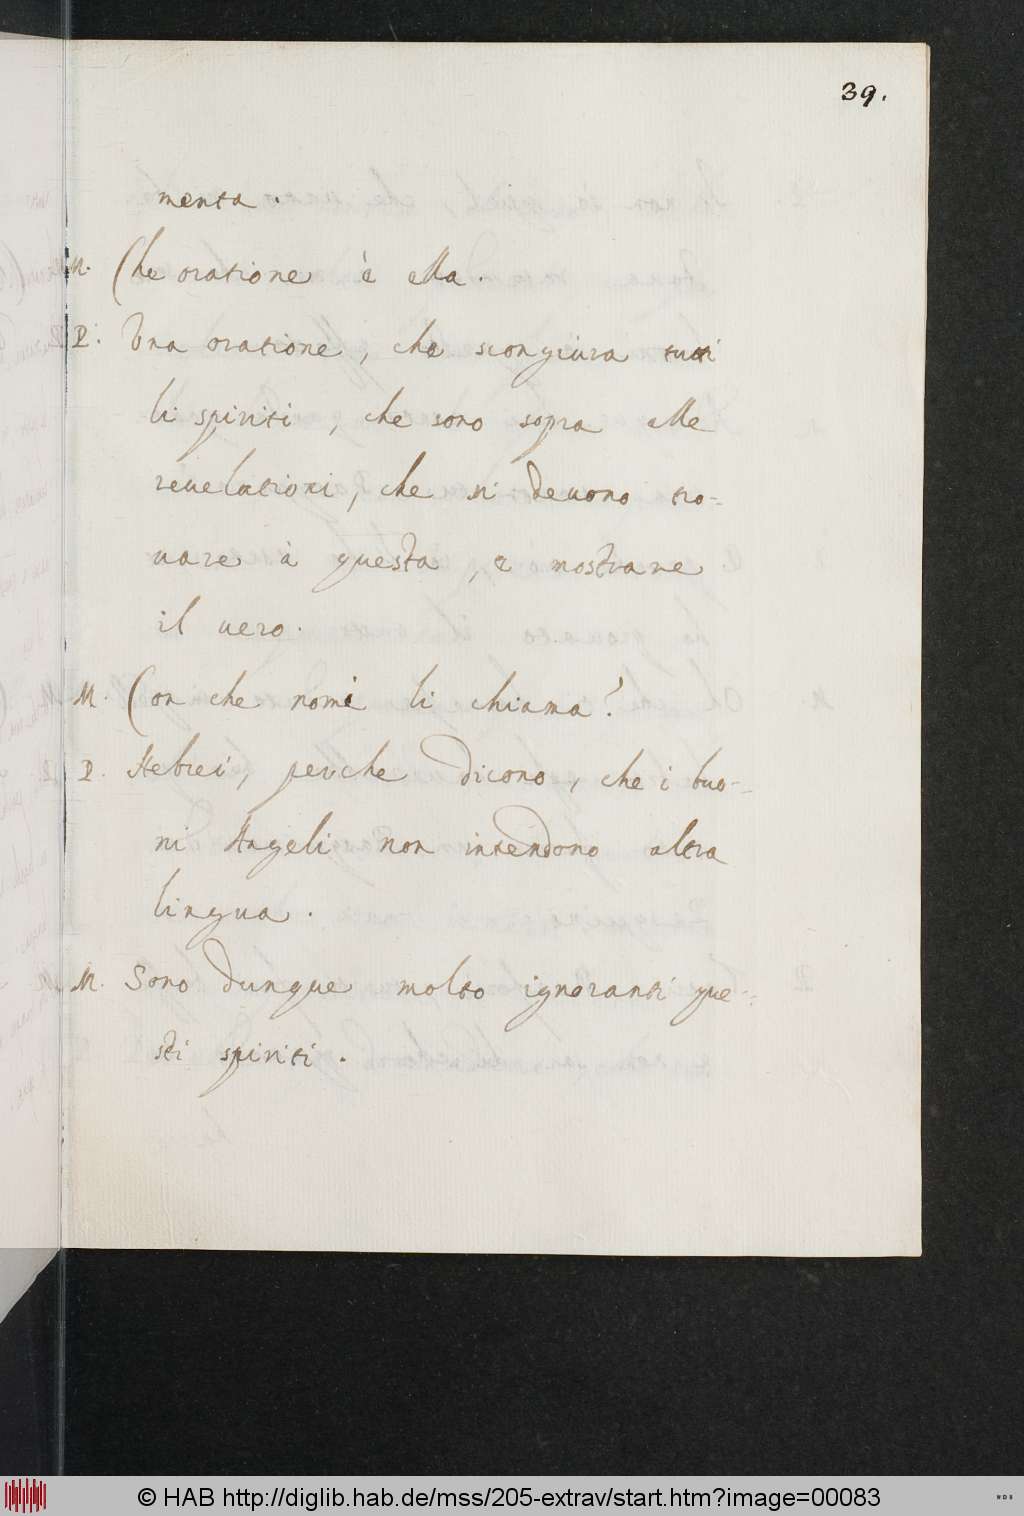 39.
menta.
M. Che oratione è ella.
P. Una oratione, che scongiura tutti
li spiriti, che sono sopra alle
reuelationi, che si deuono tro-
uare à questa, e mostrare
il uero.
M. Con che nomi li chiama?
P. Hebrei, perche dicono, che i buo-
ni Angeli non intendono altra
lingua.
M. Sono dunque molto ignoranti que-
sti spiriti.
© HAB http://diglib.hab.de/mss/205-extrav/start.htm?image=00083